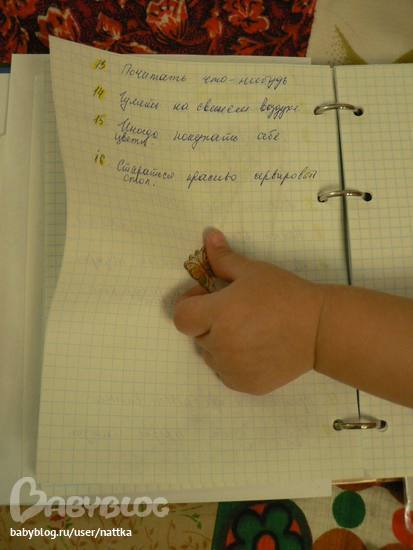 13 Почитать что-нибудь
14 Гулять на свежем воздухе
15 Иногда покупать себе
цветы
16 Стараться красиво сервировать
стол.
BABYBLOG
babyblog.ru/user/nattka